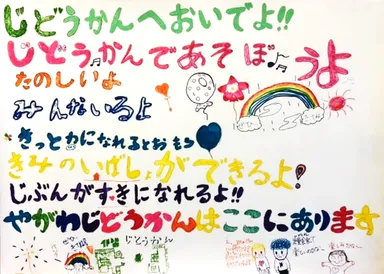 じどうかんへおいでよ!!
じどうかんであそぼうよ
たのしいよ
みんないるよ
きっとかになれるとおもう
きみのいばしょができるよ!
じぶんがすきになれるよ!!
やがわじどうかんはここにあります
じどうかん